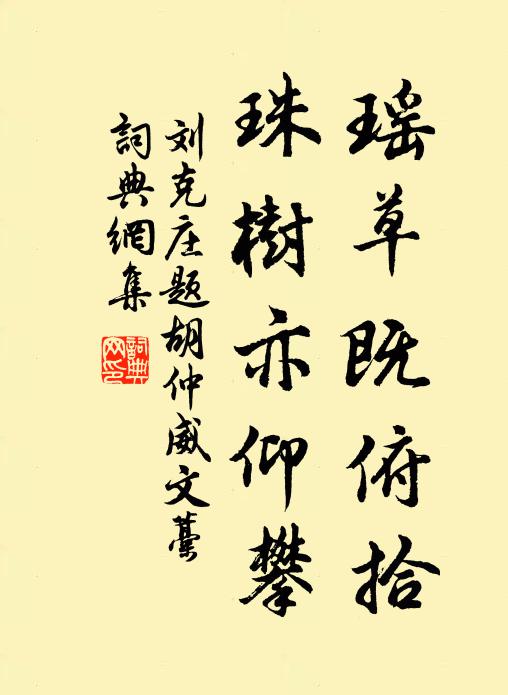 瑶草既俯拾
珠樹亦仰攀
刘克庄题胡仲威文藁
詞典網集
詞典网印